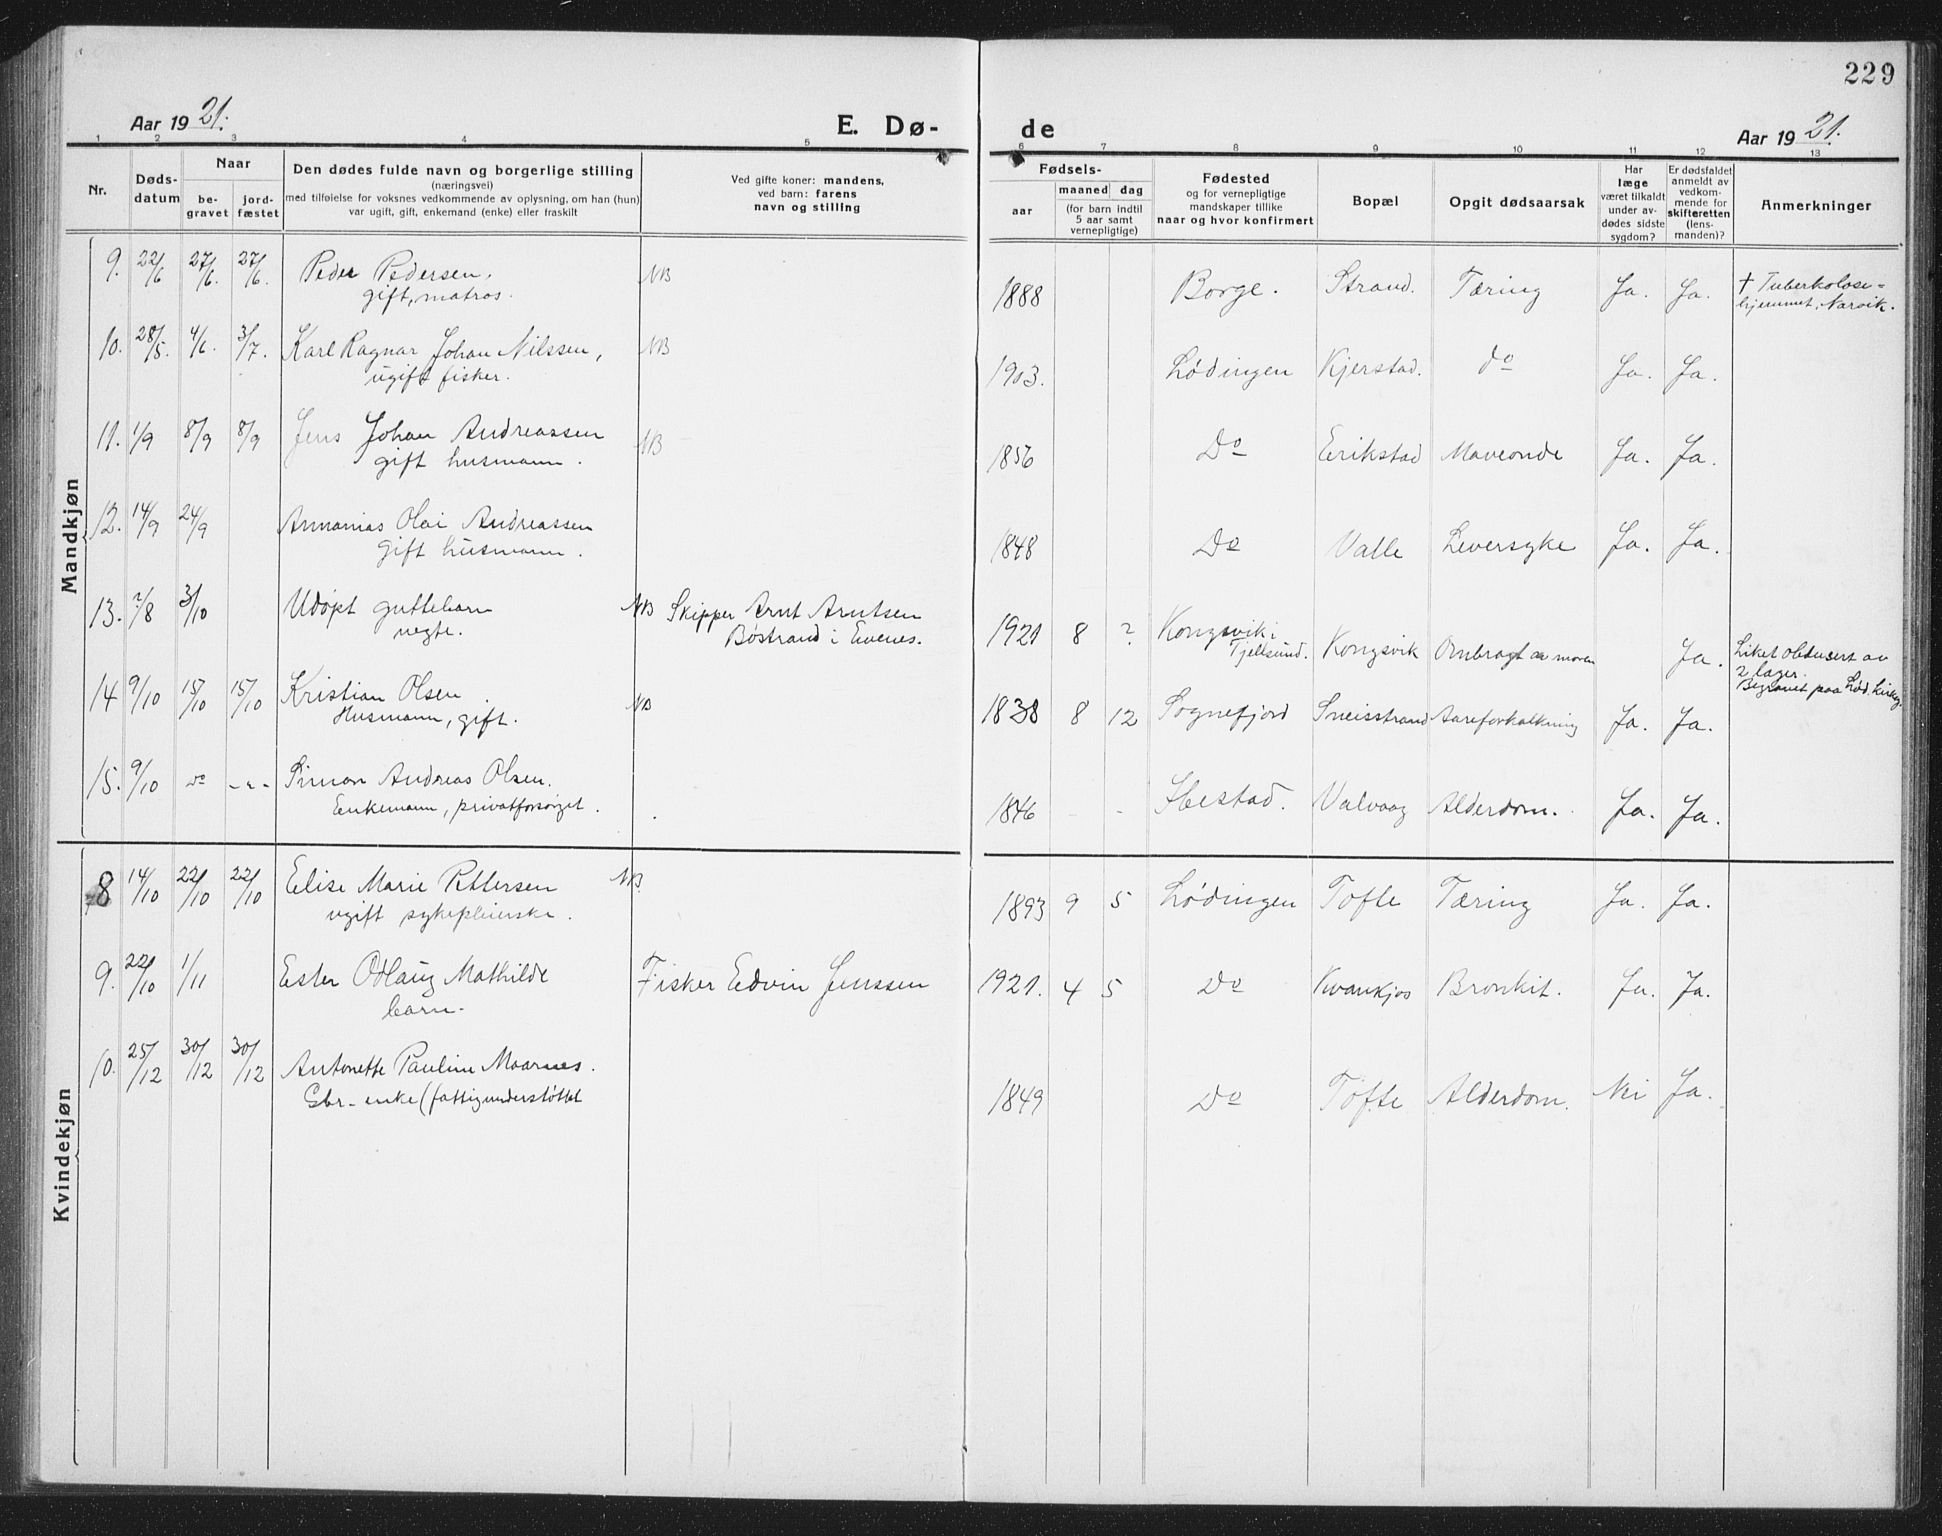 229
Aar 1921.
E. Dø-
de
Aar 1921.
1 2 3 4 5 6 7 8 9 10 11 12 13
Nr.
Døds-
datum
Naar
be-
gravet
jord-
fæstet
Den dødes fulde navn og borgerlige stilling
(næringsvei)
med tilføielse for voksnes vedkommende av oplysning, om han (hun)
var ugift, gift, enkemand (enke) eller fraskilt
Ved gifte koner: mandens,
ved barn: farens
navn og stilling
Fødsels-
aar
maaned dag
(for barn indtil
5 aar samt
vernepligtige)
Fødested
og for vernepligtige
mandskaper tillike
naar og hvor konfirmert
Bopæl
Opgit dødsaarsak
Har
læge
været tilkaldt
under av-
dødes sidste
sygdom?
Er dødsfaldet
anmeldt av
vedkom-
mende for
skifteretten
(lens-
manden)?
Anmerkninger
Mandkjøn
9. 22/6 27/6. 27/6. Peder Pedersen. NB 1888 Borge. Strand. Tæring Ja. Ja. † Tuberkolose-
gift, matros. hjemmet, Narvik.
10. 28/5. 4/6. 3/7. Karl Ragnar Johan Nilssen, NB 1903. Lødingen Kjerstad. do Ja. Ja.
ugift fisker.
11. 1/9 8/9 8/9 Jens Johan Andreassen NB 1856 Do Erikstad Maveonde Ja. Ja.
gift husmann.
12. 14/9 24/9 Annanias Olai Andreassen 1848 Do Valle Leversyke Ja. Ja.
gift husmann.
13. ?/8 3/10 Udøpt guttebarn NB Skipper Arnt Arntsen 1921 8 ? Kongsvik i Kongsvik Ombragt av moren Ja. Liket obdusert av
negte. Bøstrand i Evenes. Tjellsund. 2 læger.
Begravet paa Lød. kirkeg.
14 9/10 15/10 15/10 Kristian Olsen NB 1838 8 12 Sognefjord Sneisstrand Aareforkalkning Ja. Ja.
Husmann, gift.
15. 9/10 do -"- Simon Andreas Olsen. 1846 - - Ibestad. Valvaag Alderdom. Ja. Ja.
Enkemann, privatforsørget.
Kvindekjøn
8 14/10 22/10 22/10 Elise Marie Pettersen NB. 1893 9 5 Lødingen Tofte Tæring Ja. Ja.
ugift sykepleierske.
9. 22/10 1/11 Ester Odlaug Mathilde Fisker Edvin Jenssen 1921. 4 5 Do Kvankjos Bronkit. Ja. Ja.
barn.
10. 25/12 30/12 30/12 Antonette Pauline Maarnes. 1849 Do Tofte Alderdom. Nei Ja.
Gbr-enke (fattigunderstøttet